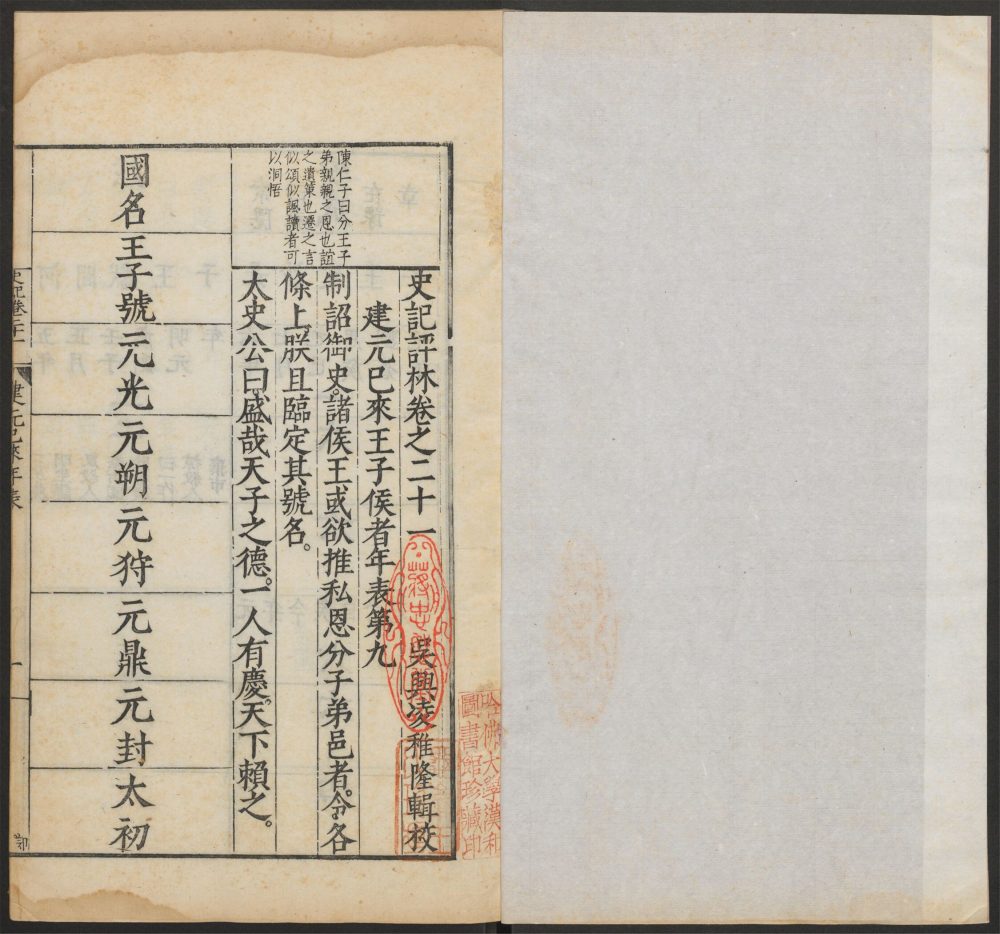 史記評林卷之二十一
吳興凌稚隆輯校
建元已來王子侯者年表第九
制詔御史諸侯王或欲推私恩分子弟邑者令各
條上朕且臨定其號名。
太史公曰盛哉天子之德一人有慶天下賴之。
陳仁子曰分王子
弟親親之恩也誼
之遺策也遷之言
似頌似諷讀者可
以洞悟
國名
王子號
元光
元朔
元狩
元鼎
元封
太初
史記卷二十一
建元已來年表
一
哈佛大學漢和
圖書館珍藏印